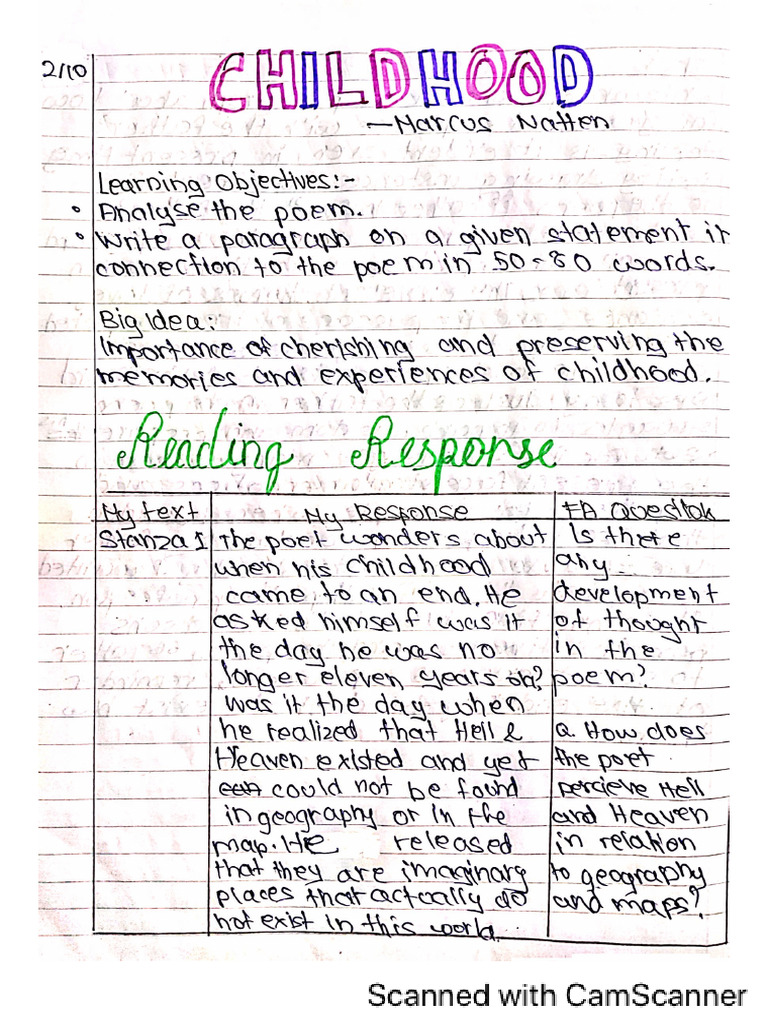 2/10
CHILDHOOD
—Marcus Natten
Learning Objectives:-
• Analyse the poem.
• Write a paragraph on a given statement in
connection to the poem in 50-80 words.
Big Idea:
Importance of cherishing and preserving the
memories and experiences of childhood.
Reading Response
My text | My Response | FA Question
Stanza 1 | The poet wonders about | Is there
when his childhood | any
came to an end. He | development
asked himself was it | of thought
the day he was no | in the
longer eleven years on? | poem?
was it the day when
he realized that Hell & | Q. How does
Heaven existed and yet | the poet
could not be found | percieve Hell
in geography or in the | and Heaven
map. He released | in relation
that they are imaginary | to geography
places that actually do | and maps?
not exist in this world.
Scanned with CamScanner